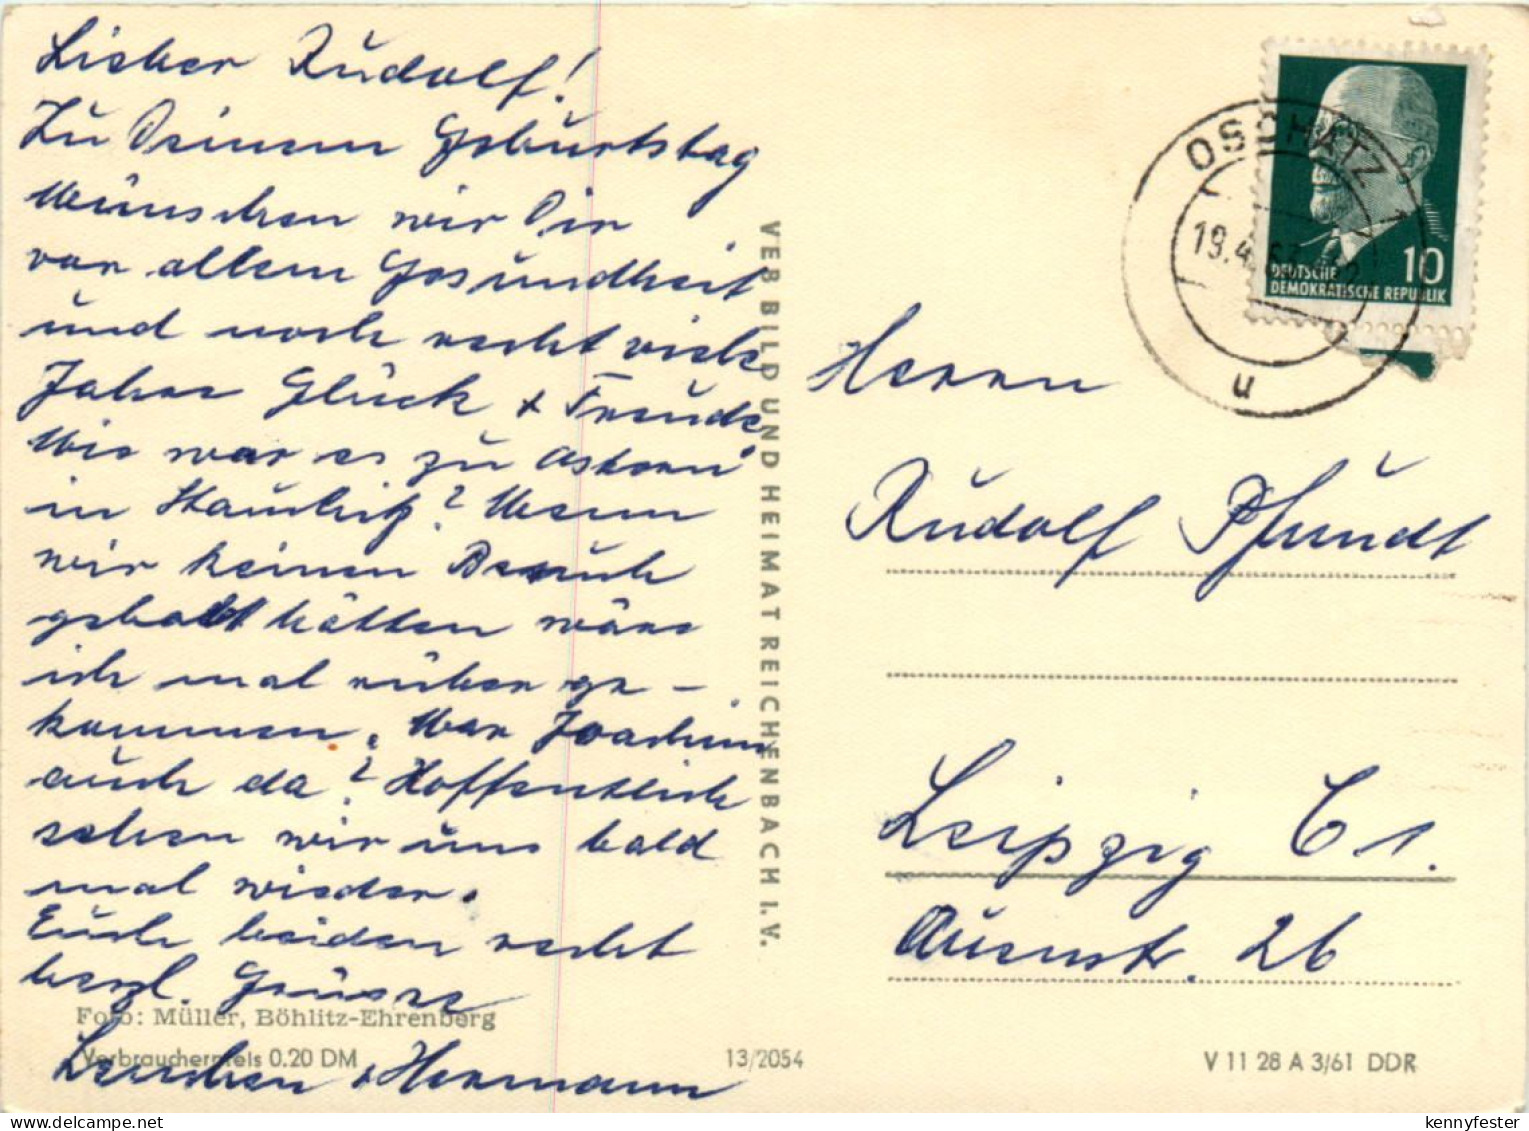 Lieber Rudolf!
Zu Deinem Geburtstag
wünschen wir Dir
vor allem Gesundheit
und noch recht viele
Jahre Glück + Freude.
Wie war es zu Ostern
in
? Wenn
wir keinen Besuch
gehabt hätten wäre
ich mal rüber ge-
kommen. War Joachim
auch da? Hoffentlich
sehen wir uns bald
mal wieder.
Euch beiden recht
herzl. Grüsse
Lenchen + Hermann
Foto: Müller, Böhlitz-Ehrenberg
Verbraucherpreis 0.20 DM
VEB BILD UND HEIMAT REICHENBACH I. V.
13/2054
OSCHATZ 1
19.4.
u
10
DEUTSCHE
DEMOKRATISCHE REPUBLIK
Herrn
Rudolf Pfundt
Leipzig C 1.
Auenstr. 26
V 11 28 A 3/61 DDR
kennyfester